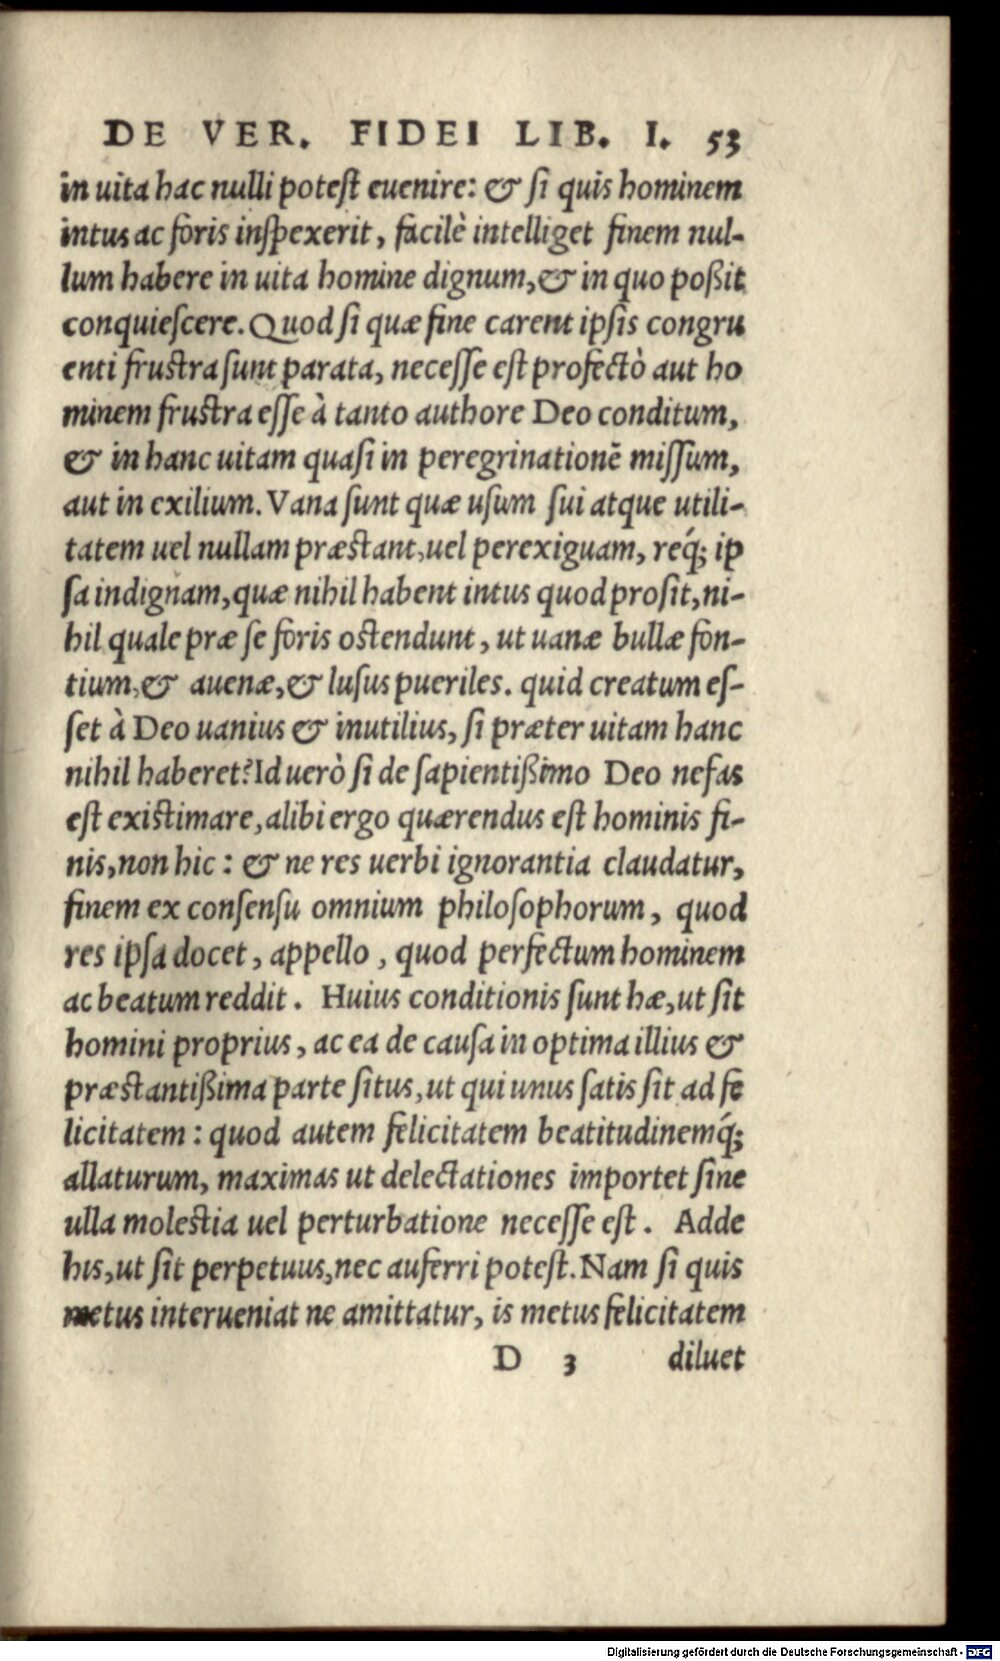 DE VER. FIDEI LIB. I. 53
in uita hac nulli poteſt euenire: & ſi quis hominem
intus ac foris inſpexerit, facilè intelliget finem nul-
lum habere in uita homine dignum, & in quo poßit
conquieſcere. Quod ſi quæ fine carent ipſis congru
enti fruſtra ſunt parata, neceſſe eſt profectò aut ho
minem fruſtra eſſe à tanto authore Deo conditum,
& in hanc uitam quaſi in peregrinationē miſſum,
aut in exilium. Vana ſunt quæ uſum ſui atque utili-
tatem uel nullam præſtant, uel perexiguam, req́; ip
ſa indignam, quæ nihil habent intus quod proſit, ni-
hil quale præ ſe foris oſtendunt, ut uanæ bullæ fon-
tium, & auenæ, & luſus pueriles. quid creatum eſ-
ſet à Deo uanius & inutilius, ſi præter uitam hanc
nihil haberet? Id uerò ſi de ſapientißimo Deo nefas
eſt exiſtimare, alibi ergo quærendus eſt hominis fi-
nis, non hic: & ne res uerbi ignorantia claudatur,
finem ex conſenſu omnium philoſophorum, quod
res ipſa docet, appello, quod perfectum hominem
ac beatum reddit. Huius conditionis ſunt hæ, ut ſit
homini proprius, ac ea de cauſa in optima illius &
præſtantißima parte ſitus, ut qui unus ſatis ſit ad fe
licitatem: quod autem felicitatem beatitudinemq́;
allaturum, maximas ut delectationes importet ſine
ulla moleſtia uel perturbatione neceſſe eſt. Adde
his, ut ſit perpetuus, nec auferri poteſt. Nam ſi quis
metus interueniat ne amittatur, is metus felicitatem
D 3 diluet
Digitalisierung gefördert durch die Deutsche Forschungsgemeinschaft - DFG